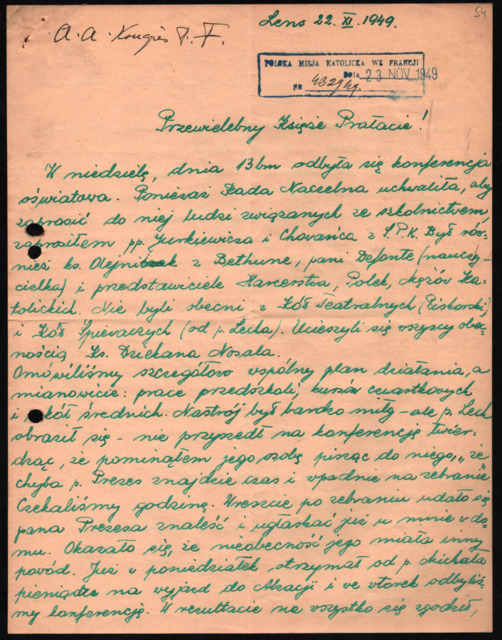 54
Lens 22. XI. 1949.
A. A. Kongres P. F.
POLSKA MISJA KATOLICKA WE FRANCJI
DNIA 23 NOV 1949
NR 4329/49
Przewielebny Księże Prałacie!
W niedzielę, dnia 13 bm odbyła się konferencja
oświatowa. Ponieważ Rada Naczelna uchwaliła, aby
zaprosić do niej ludzi związanych ze szkolnictwem,
zaprosiłem pp. Jurkiewicza i Chowańca z S.P.K. Był rów-
nież ks. Olejniczak z Bethune, pani Defonte (nauczy-
cielka) i przedstawiciele Harcerstwa, Polek, Mężów Ka-
tolickich. Nie byli obecni z Kół Teatralnych (Piskorski)
i Kół Śpiewaczych (od p. Lecha). Ucieszyli się wszyscy obec-
nością Ks. Dziekana Nosala.
Omówiliśmy szczegółowo wspólny plan działania, a
mianowicie: prace przedszkoli, kursów czwartkowych
i szkół średnich. Nastrój był bardzo miły – ale p. Lech
obraził się – nie przyszedł na konferencję twier-
dząc, że pominąłem jego osobę pisząc do niego, „że
chyba p. Prezes znajdzie czas i wpadnie na zebranie"
Czekaliśmy godzinę. Wreszcie po zebraniu udało się
pana Prezesa znaleść i ugłaskać już u mnie w do-
mu. Okazało się, że nieobecność jego miała inny
powód. Już w poniedziałek otrzymał od p. Michała
pieniądze na wyjazd do Alzacji i we wtorek odbyliś-
my konferencję. W rezultacie na wszystko się zgodził,